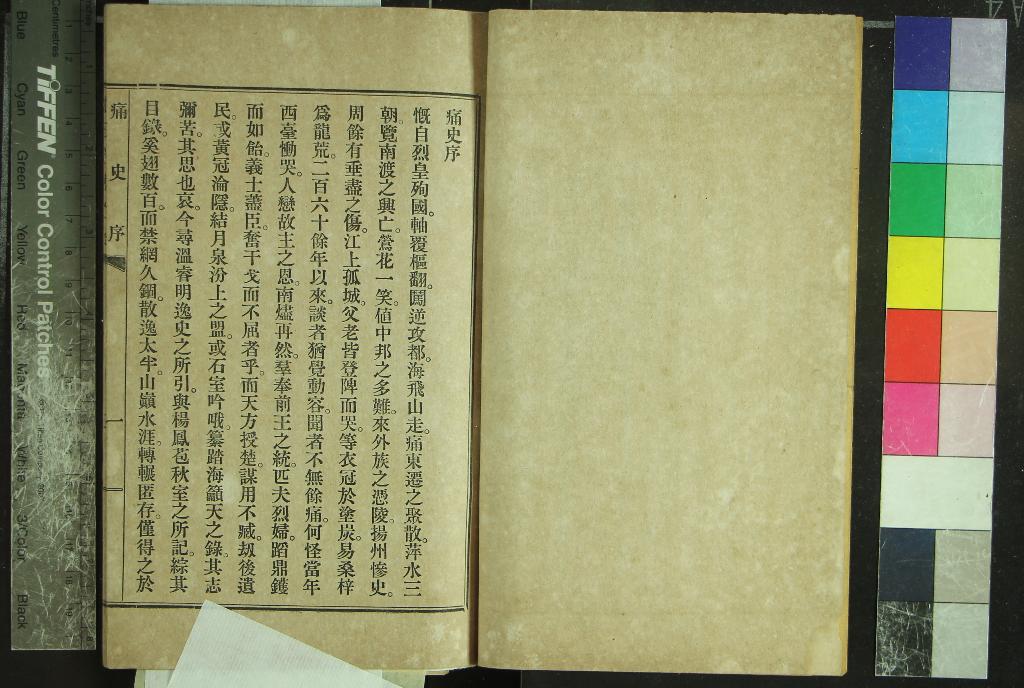 痛史序
慨自烈皇殉國。軸覆樞翻。闖逆攻都。海飛山走。痛東遷之聚散。萍水三
朝。覽南渡之興亡。鶯花一笑。値中邦之多難。來外族之憑陵。揚州慘史。
周餘有垂盡之傷。江上孤城。父老皆登陴而哭。等衣冠於塗炭。易桑梓
爲龍荒。二百六十餘年以來。談者猶覺動容。聞者不無餘痛。何怪當年
西臺慟哭。人戀故主之恩。南燼再然。羣奉前王之統。匹夫烈婦。蹈鼎鑊
而如飴。義士藎臣。奮干戈而不屈者乎。而天方授楚。謀用不臧。刼後遺
民。或黃冠淪隱。結月泉汾上之盟。或石室吟哦。纂踏海籲天之錄。其志
彌苦。其思也哀。今尋溫睿明逸史之所引。與楊鳳苞秋室之所記。綜其
目錄。奚翅數百。而禁網久錮。散逸太半。山巓水涯。轉輾匿存。僅得之於
痛史序
一
TIFFEN Color Control Patches
Centimetres
Blue Cyan Green Yellow Red Magenta White 3/Color Black